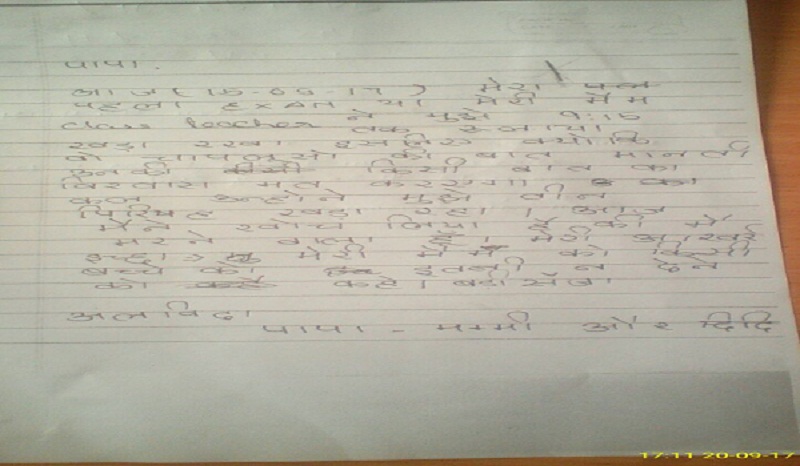 पापा.
आज (15-09-17) मेरा
पहला Exam था मेरी मैम
class teacher ने मुझे 9:15
तक रुलाया
खड़ा रखा इसलिए क्योंकि
वो चापलूसो की बात मानती
उनकी किसी बात का
विश्वास मत करना
कल उन्होंने मुझे तीन
पिरियड खड़ा रखा। आज
मैंने सोच लिया है की मैं
मरने वाला हूँ। मेरी आखरी
इच्छा मेरी मैम को किसी
बच्चे को इतनी न देने
को कहे। बड़ी सजा
अलविदा
पापा - मम्मी और दिदि
17:11 20-09-17